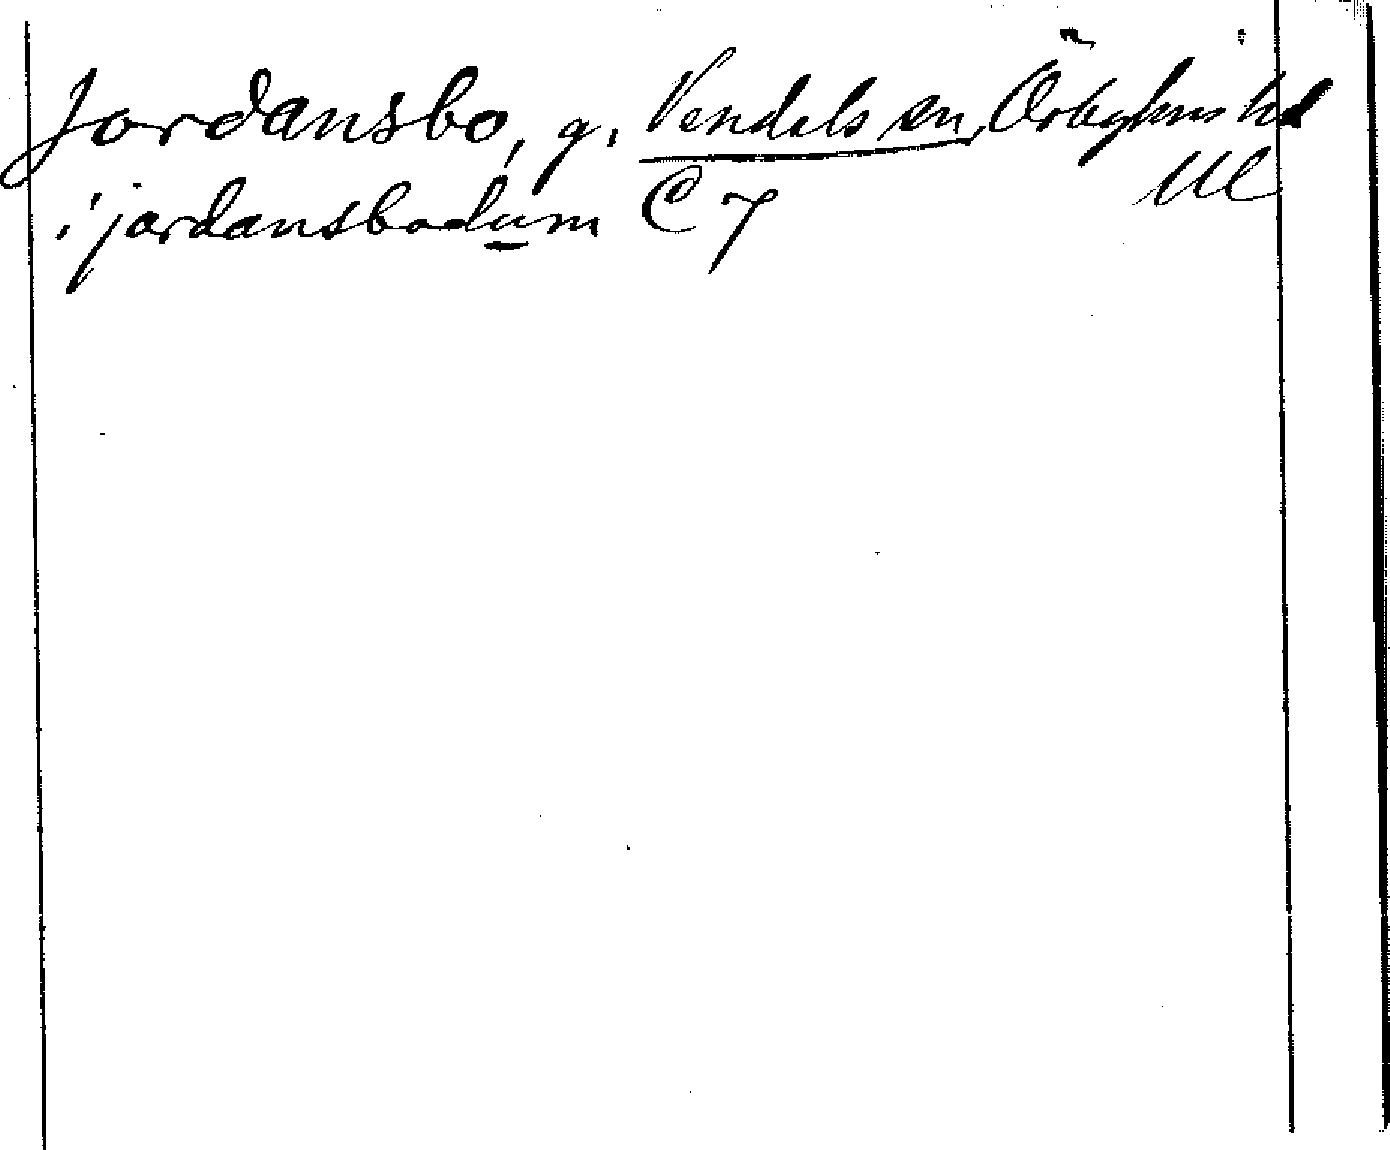 Jordansbo, g, Vendels sn, Örbyhus hd
i jordansbodum C 7 Ul